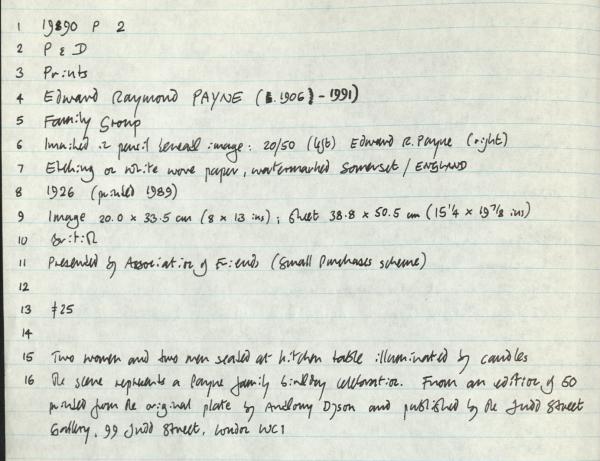 1 1990 P 2
2 P & D
3 Prints
4 Edward Raymond PAYNE (b. 1906) - 1991)
5 Family Group
6 Inscribed in pencil beneath image: 20/50 (left) Edward R. Payne (right)
7 Etching on white wove paper, watermarked Somerset / ENGLAND
8 1926 (printed 1989)
9 Image 20.0 x 33.5 cm (8 x 13 ins); Sheet 38.8 x 50.5 cm (15 1/4 x 19 7/8 ins)
10 British
11 Presented by Association of Friends (Small Purchases scheme)
12
13 £25
14
15 Two women and two men seated at kitchen table illuminated by candles
16 The scene represents a Payne family birthday celebration. From an edition of 50
printed from the original plate by Anthony Dyson and published by the Judd Street
Gallery, 99 Judd Street, London WC1